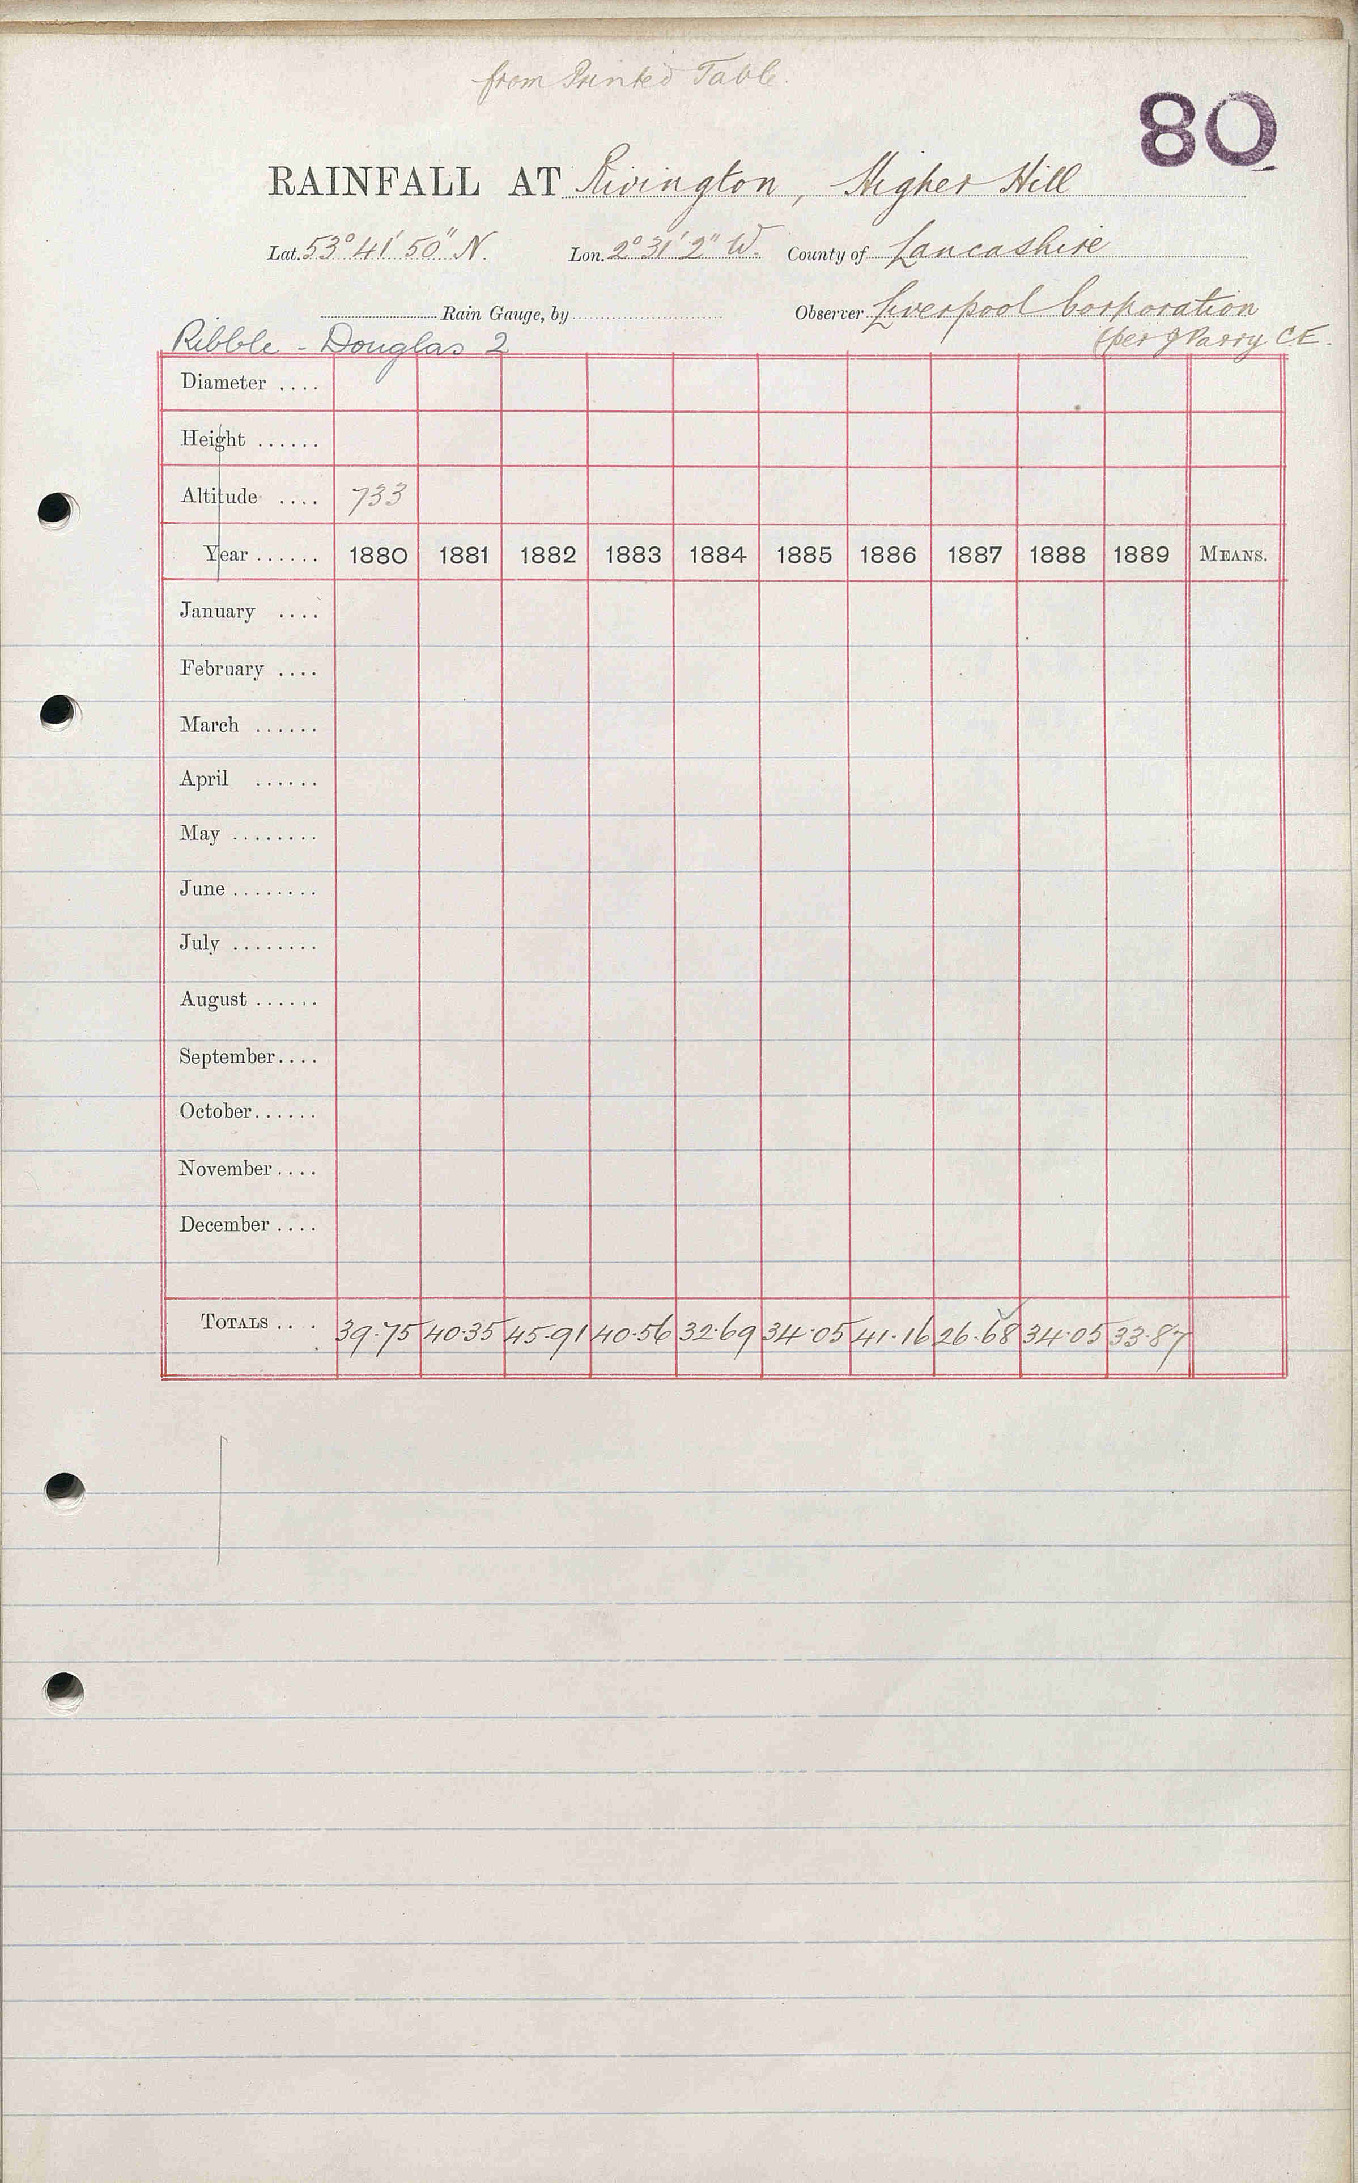 from Printed Table.
80
RAINFALL AT Rivington, Higher Hill
Lat. 53° 41' 50" N. Lon. 2° 31' 2" W. County of Lancashire
Rain Gauge, by Observer Liverpool Corporation
Ribble - Douglas 2 (per J Parry CE.
Diameter ....
Height ......
Altitude .... 733
Year ...... 1880 1881 1882 1883 1884 1885 1886 1887 1888 1889 MEANS.
January ....
February ....
March ......
April ......
May ........
June ........
July ........
August ......
September ....
October ......
November ....
December ....
TOTALS .... 39.75 40.35 45.91 40.56 32.69 34.05 41.16 26.68 34.05 33.87